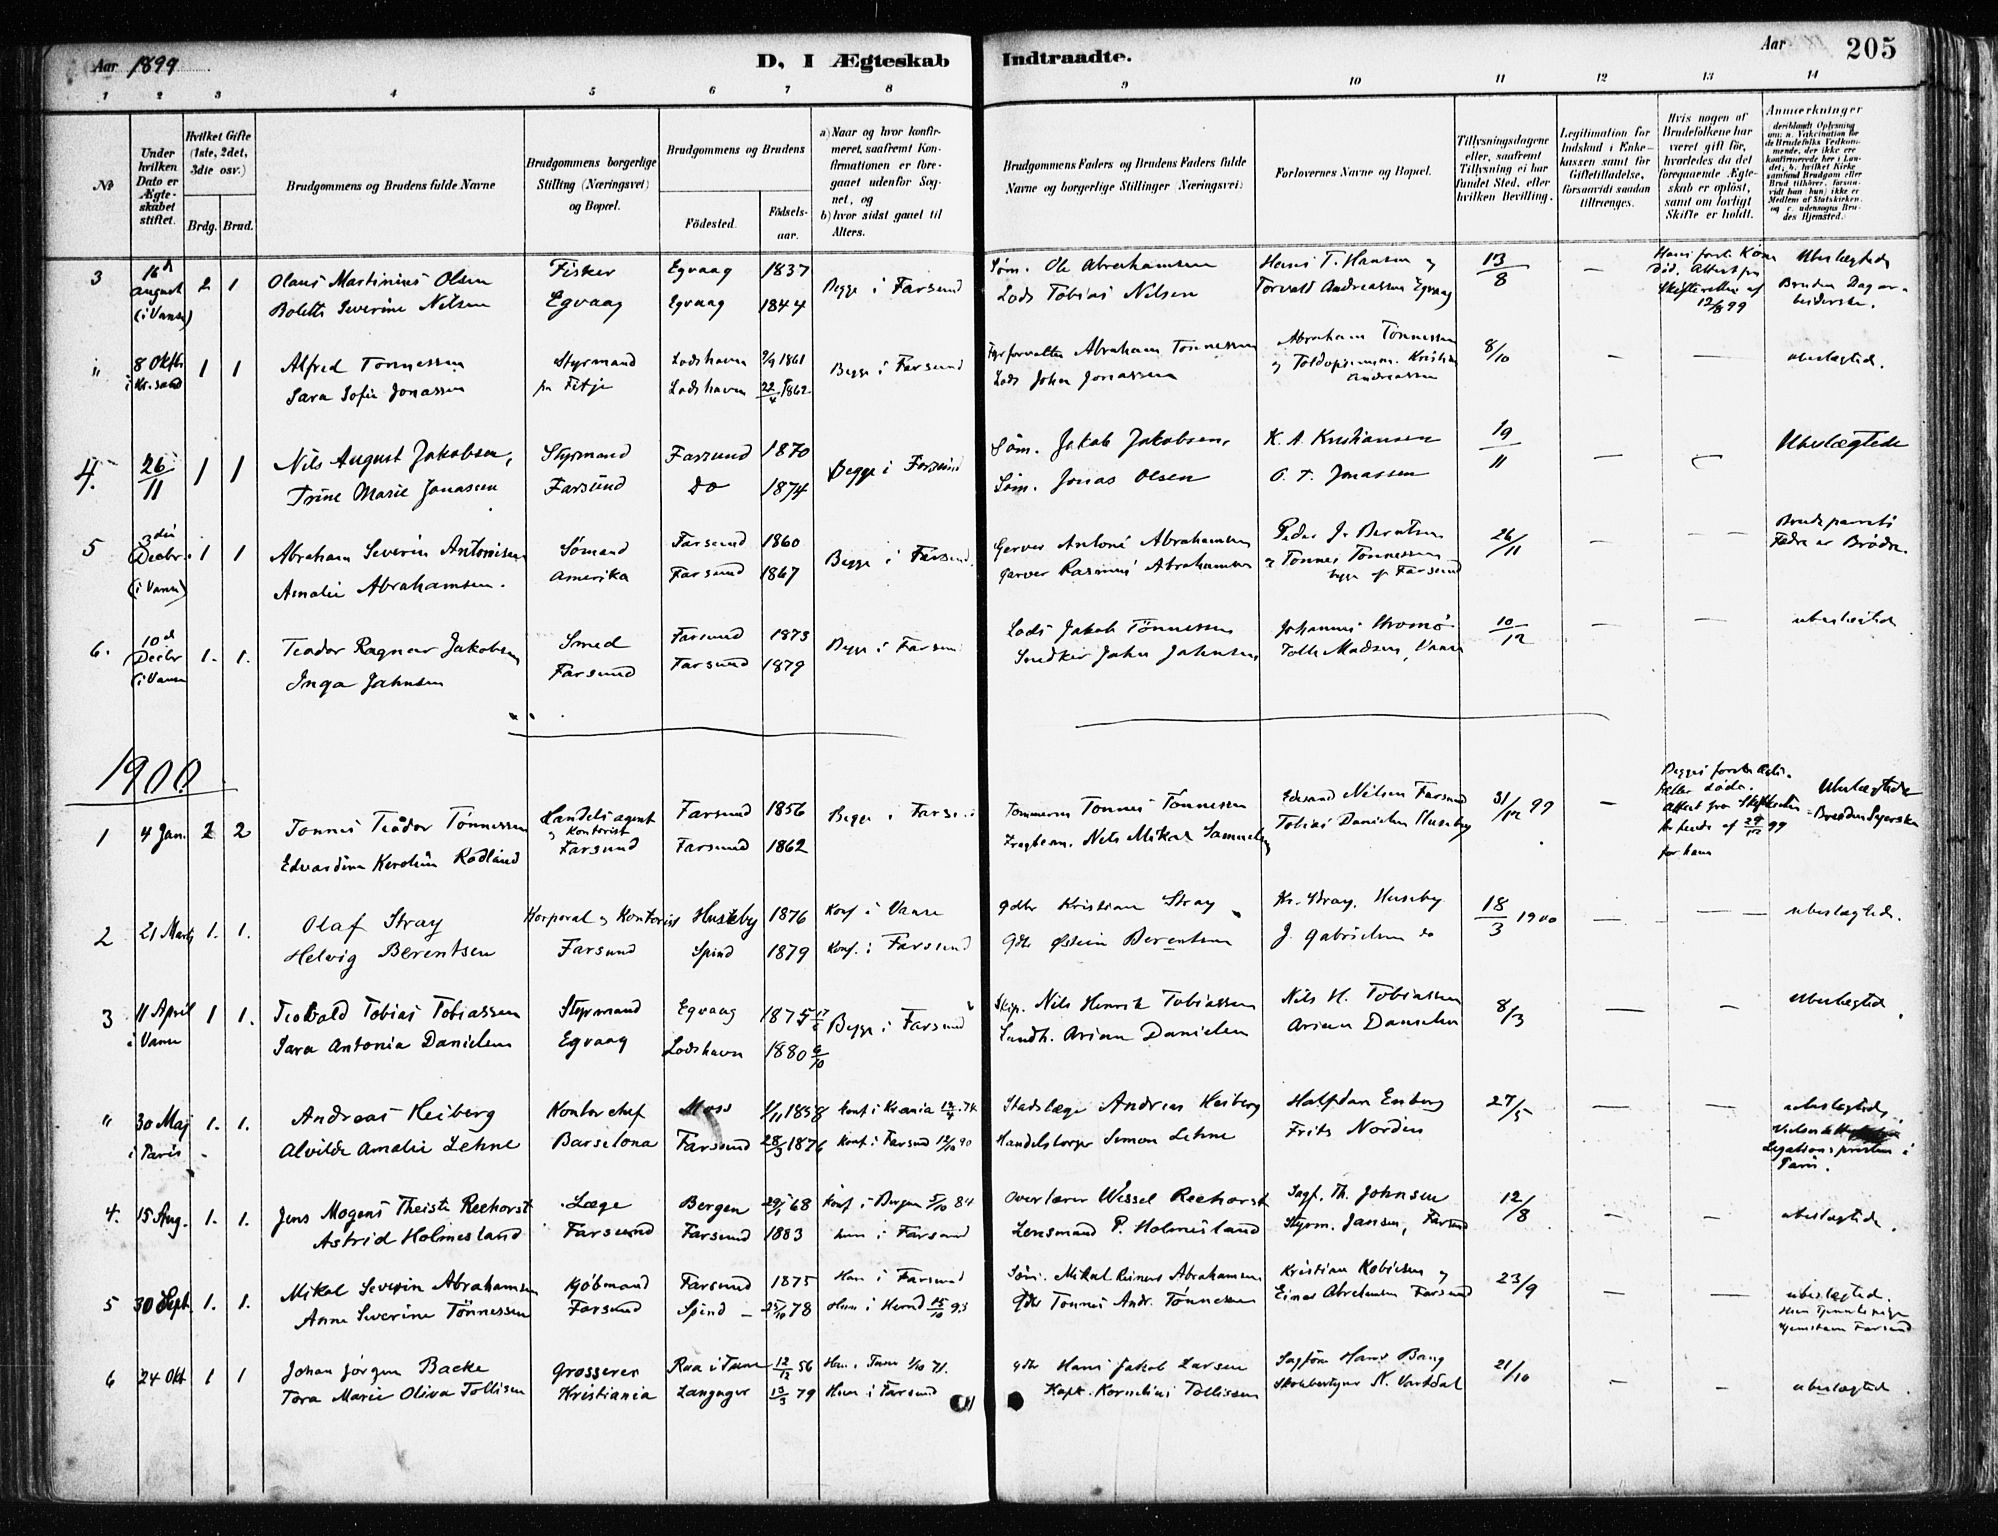 Aar 1899
D. I Ægteskab
Indtraadte.
Aar
205
1 2 3 4 5 6 7 8 9 10 11 12 13 14
No
Under hvilken Dato er Ægteskabet stiftet.
Hvilket Gifte (1ste, 2det, 3die osv.)
Brdg. Brud.
Brudgommens og Brudens fulde Navne
Brudgommens borgerlige Stilling (Næringsvei) og Bopæl.
Brudgommens og Brudens
Fødested.
Fødselsaar.
a) Naar og hvor konfirmeret, saafremt Konfirmationen er foregaaet udenfor Sognet, og
b) hvor sidst gaaet til Alters.
Brudgommens Faders og Brudens Faders fulde Navne og borgerlige Stillinger (Næringsvei)
Forlovernes Navne og Bopæl.
Tillysningsdagene eller, saafremt Tillysning ei har fundet Sted, efter hvilken Bevilling.
Legitimation for Indskud i Enkekassen samt for Giftetilladelse, forsaavidt saadan tiltrænges.
Hvis nogen af Brudefolkene har været gift før, hvorledes da det foregaaende Ægteskab er opløst, samt om lovligt Skifte er holdt.
Anmærkninger
3 16d August (i Vanse) 2 1 Olaus Martinius Olsen Fisker Egvaag 1837 Begge i Farsund Søm. Ole Abrahamsen Hans T. Hansen og 13/8 — Hans første Kone død. Attest fra Skifteretten af 12/8 99 Ubeslægtede
Bolette Severine Nilsen Egvaag Egvaag 1844 Lods Tobias Nilsen Torvald Andreassen Egvaag Bruden Dagarbeiderske.
" 8 Oktbr i Kr.sand 1 1 Alfred Tønnessen Styrmand Lodshavn 9/9 1861 Begge i Farsund Fyrforvalter Abraham Tønnessen Abraham Tønnessen 8/10 — — ubeslægtede.
Sara Sofie Jonassen paa Fitje Lodshavn 22/4 1862 Lods John Jonassen og Toldopsynsm. Kristian Andreassen
4. 26/11 1 1 Nils August Jakobsen, Styrmand Farsund 1870 Begge i Farsund Søm. Jakob Jakobsen. K. A. Kristiansen 19/11 — — Ubeslægtede
Trine Marie Jonassen Farsund do 1874 Søm. Jonas Olsen O. T. Jonassen
5 3die Decbr. (i Vanse) 1 1 Abraham Severin Antonisen Sømand Farsund 1860 Begge i Farsund. Garver Antoni Abrahamsen Peder J. Berntsen 26/11 — — Brudeparrets
Amalie Abrahamsen. Amerika Farsund 1867 Garver Rasmus Abrahamsen og Tønnes Tønnessen begge af Farsund Fædre er Brødre.
6. 10d Decbr (i Vanse 1. 1. Teodor Ragnar Jakobsen Smed Farsund 1873 Begge i Farsun Lods Jakob Tønnessen Johannes Bromø 10/12 — — ubeslægtede
Inga Jahnsen Farsund Farsund 1879 Snedker Jahn Jahnsen Tolle Madsen, Vanse
1900
1 4 Jan. 2 2 Tønnes Teodor Tønnessen Handelsagent og Kontorist Farsund 1856 Begge i Farsund Tømmerm Tønnes Tønnessen Edvard Nilsen Farsund 31/12 99 — Begges første Ægtefæller døde. Attest fra Skifteretten for hende af 29/12 99 for ham Ubeslægtede
Edvardine Karoline Rødland Farsund Farsund 1862 Fragtem. Nils Mikal Samuelsen Tobias Danielsen Huseby Bruden Syerske
2 21 Marts 1. 1. Olaf Stray Korporal og Kontorist Huseby 1876 Konf i Vanse Gdbr Kristian Stray Kr. Stray, Huseby 18/3 1900 — — ubeslægtede.
Helvig Berentsen Farsund Spind 1879 Konf. i Farsund Gdbr Østein Berentsen J. Gabrielsen do
3 11 April i Vanse 1 1. Teobald Tobias Tobiassen Styrmand Egvaag 1875 17/6 Begge i Farsund Skip. Nils Henrik Tobiassen Nils H. Tobiassen 8/3 — — Ubeslægtede
Sara Antonia Danielsen Egvaag Lodshavn 1880 6/10 Landh. Arian Danielsen Arian Danielsen
" 30 Maj i Paris 1. 1. Andreas Heiberg Kontorchef Moss 1/11 1858 Konf i Krania 12/4. 74 Stadslæge Andreas Heiberg Halfdan Enberg 27/5 — — ubeslægtede
Alvilde Amalie Lehne Barselona Farsund 28/3 1876 Konf i Farsund 12/10 90 Handelsborger Simon Lehne Frits Norden Legationspresten i Paris.
4. 15 Aug. 1. 1. Jens Mogens Theiste Reehorst Læge Bergen 29/1 68 Konf i Bergen 5/10 84 Overlærer Wessel Reehorst Sagf. Th. Johnsen 12/8 — — ubeslægtede.
Astrid Holmesland Farsund Farsund 1883 hun i Farsund Lensmand P. Holmesland Styrm. Jansen, Farsund
5 30 Sept. 1. 1. Mikal Severin Abrahamsen Kjøbmand Farsund 1875 Han i Farsund Søm. Mikal Reiners Abrahamsen Kristian Robiesen og 23/9 — — ubeslægted.
Anne Severine Tønnessen Farsund Spind — 25/10 78 Hun i Herad 15/10 93 Gdbr Tønnes Andr. Tønnessen Einar Abrahamsen Farsund Hun Tjenestepige Hjemstavn Farsund
6 24 Okt 1 1 Johan Jørgen Backe Grosserer Raa i Tune 12/12 56 Han i Tune 1/10 71. Gdbr Hans Jakob Larsen Sagfører Hans Bang 21/10 — — ubeslægtede.
Tora Marie Oliva Tollisen Kristiania Langager 13/3 79 Hun i Farsund Kapt. Kornelius Tollissen Skolebestyrer N. Vartdal